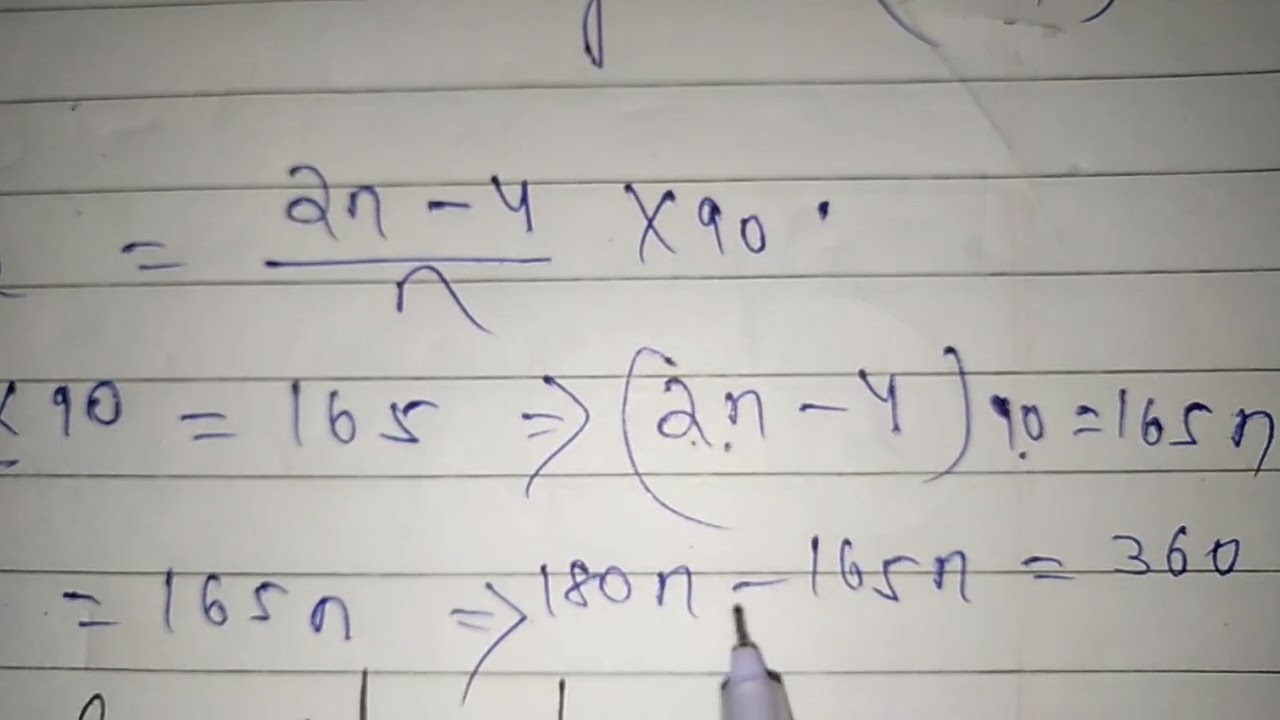 = 2n - 4 / n × 90°
× 90 = 165 ⇒ (2n - 4) 90 = 165n
= 165n ⇒ 180n - 165n = 360